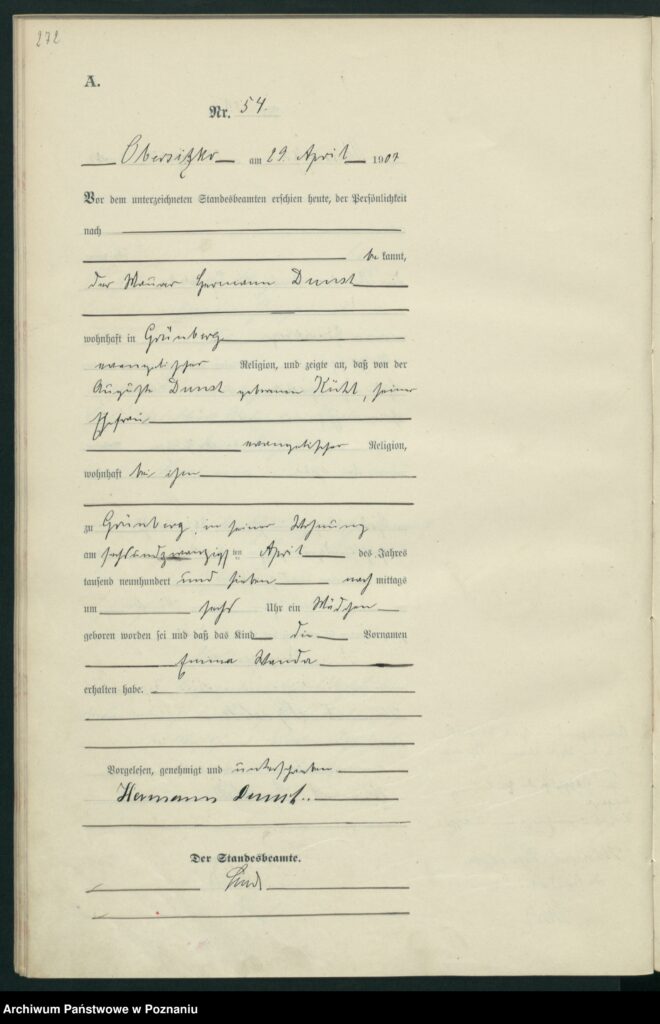 272
A.
Nr. 54.
Obersitzko am 29. April 1907
Vor dem unterzeichneten Standesbeamten erschien heute, der Persönlichkeit
nach
bekannt,
der Maurer Hermann Dunst
wohnhaft in Grünberg
evangelischer Religion, und zeigte an, daß von der
Auguste Dunst geborenen, seiner
Ehefrau
evangelischer Religion,
wohnhaft bei ihm
zu Grünberg in seiner Wohnung
am sechsundzwanzigsten April des Jahres
tausend neunhundert und sieben nachmittags
um sechs Uhr ein Mädchen
geboren worden sei und daß das Kind die Vornamen
Emma Wanda
erhalten habe.
Vorgelesen, genehmigt und unterschrieben
Hermann Dunst.
Der Standesbeamte.
Archiwum Państwowe w Poznaniu